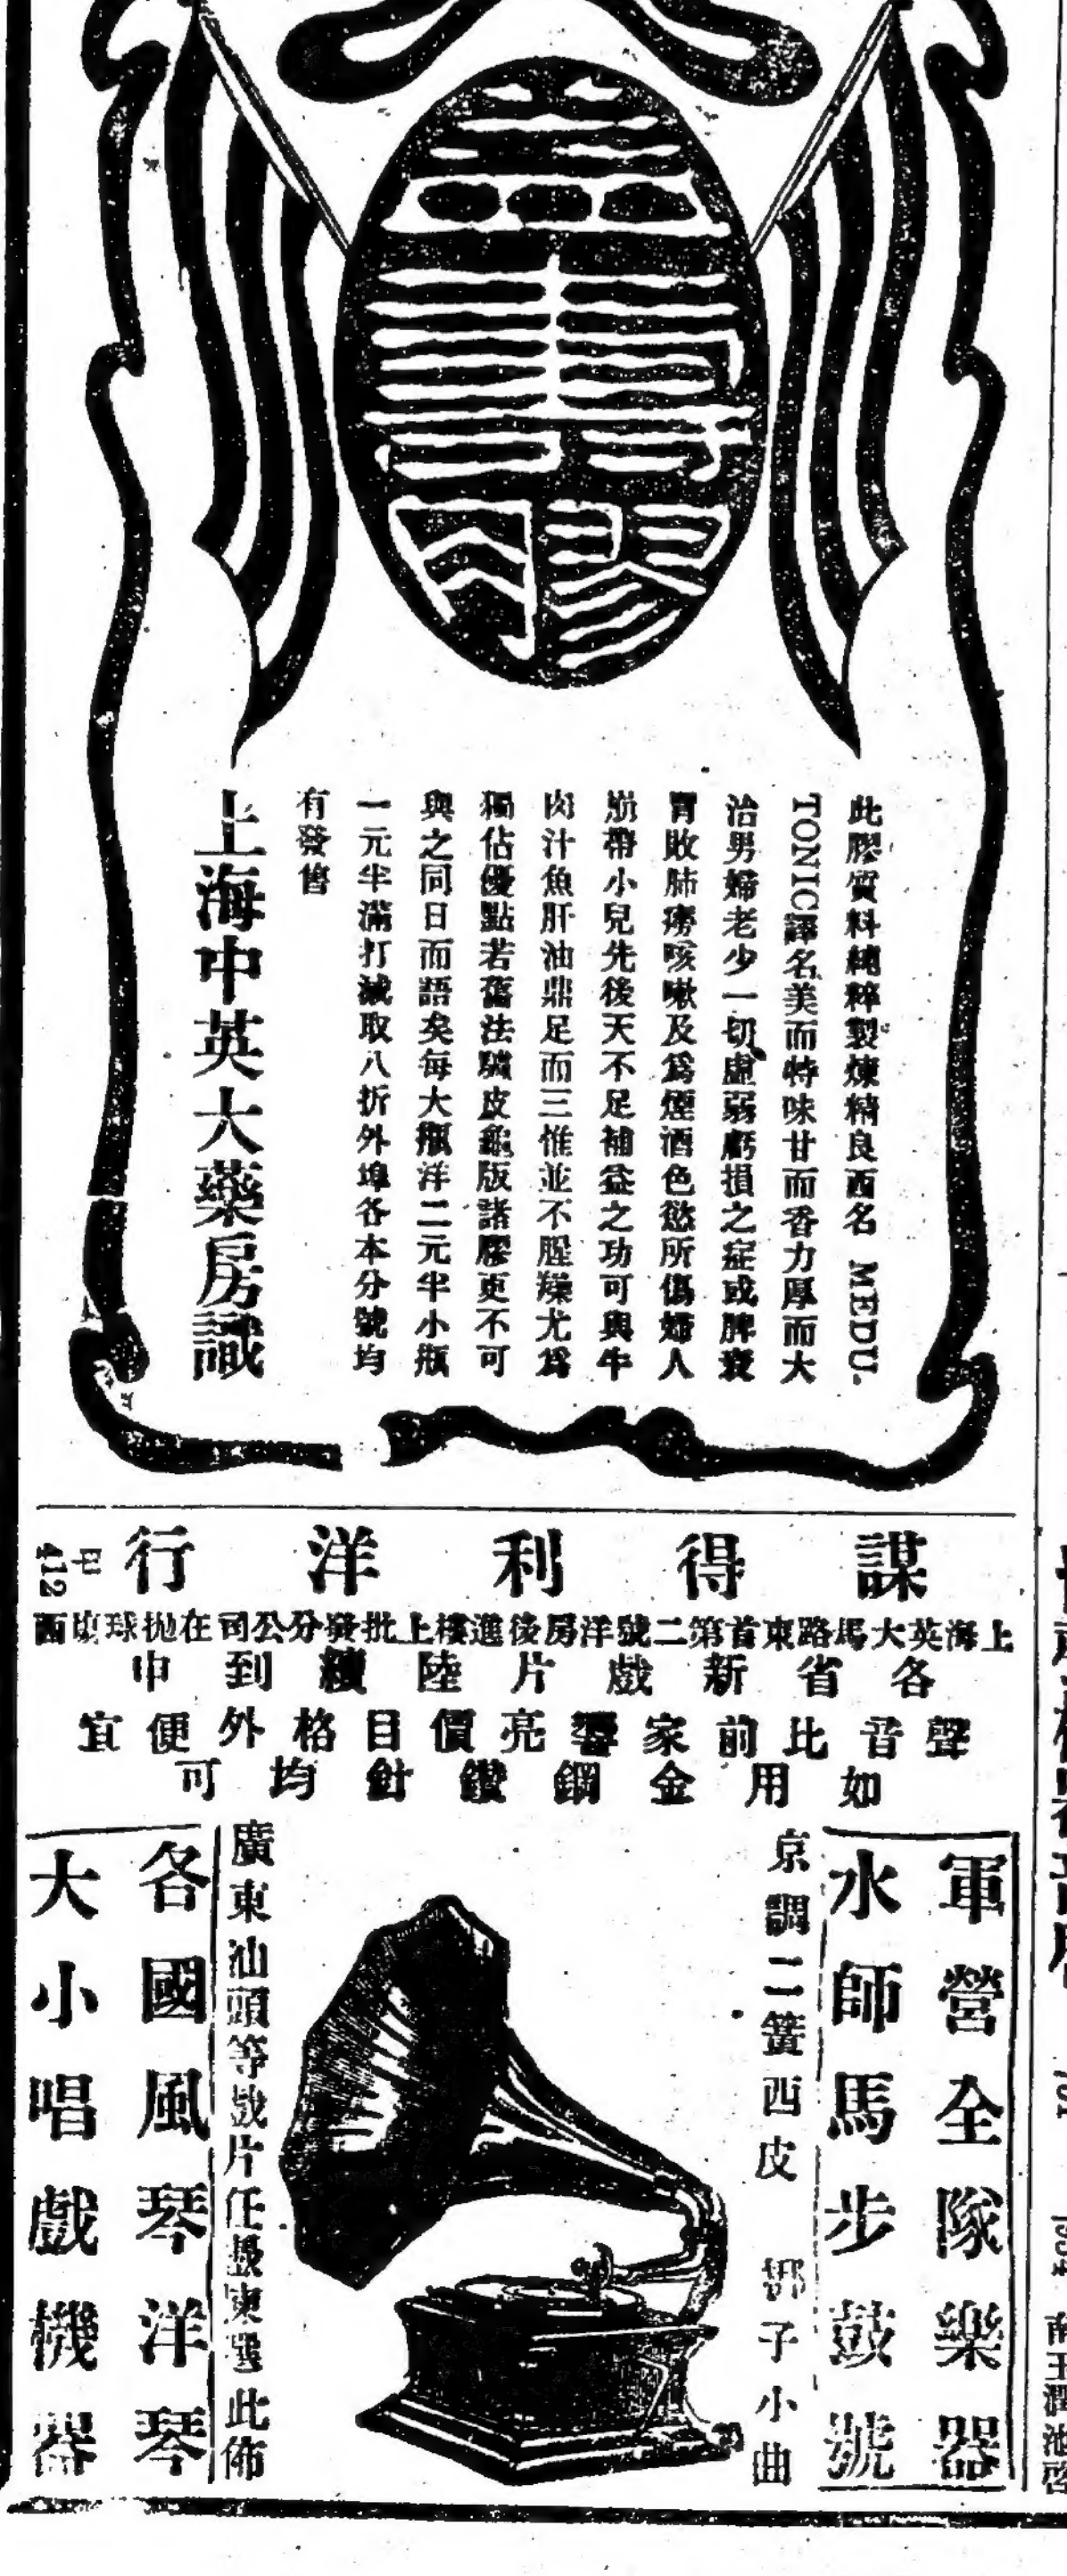 壽膠
此膠質料純粹製煉精良西名 MEDU.
TONIC譯名美而特味甘而香力厚而大
治男婦老少一切虛弱虧損之症或脾衰
胃敗肺癆咳嗽及爲煙酒色慾所傷婦人
崩帶小兒先後天不足補益之功可與牛
肉汁魚肝油鼎足而三惟並不腥燥尤爲
獨佔優點若舊法驢皮龜版諸膠更不可
與之同日而語矣每大瓶洋二元半小瓶
一元半滿打減取八折外埠各本分號均
有發售
上海中英大藥房識
謀得利洋行
甲412
上海英大馬路東首第二號洋房後進樓上批發分公司在拋球塲西
各省新戲片陸續到申
聲音比前家響亮價目格外便宜
如用金鋼鑽針均可
軍營全隊樂器
水師馬步鼓號
京調二簧西皮 梆子小曲
廣東汕頭等戲片任聽來選此佈
各國風琴洋琴
大小唱戲機器